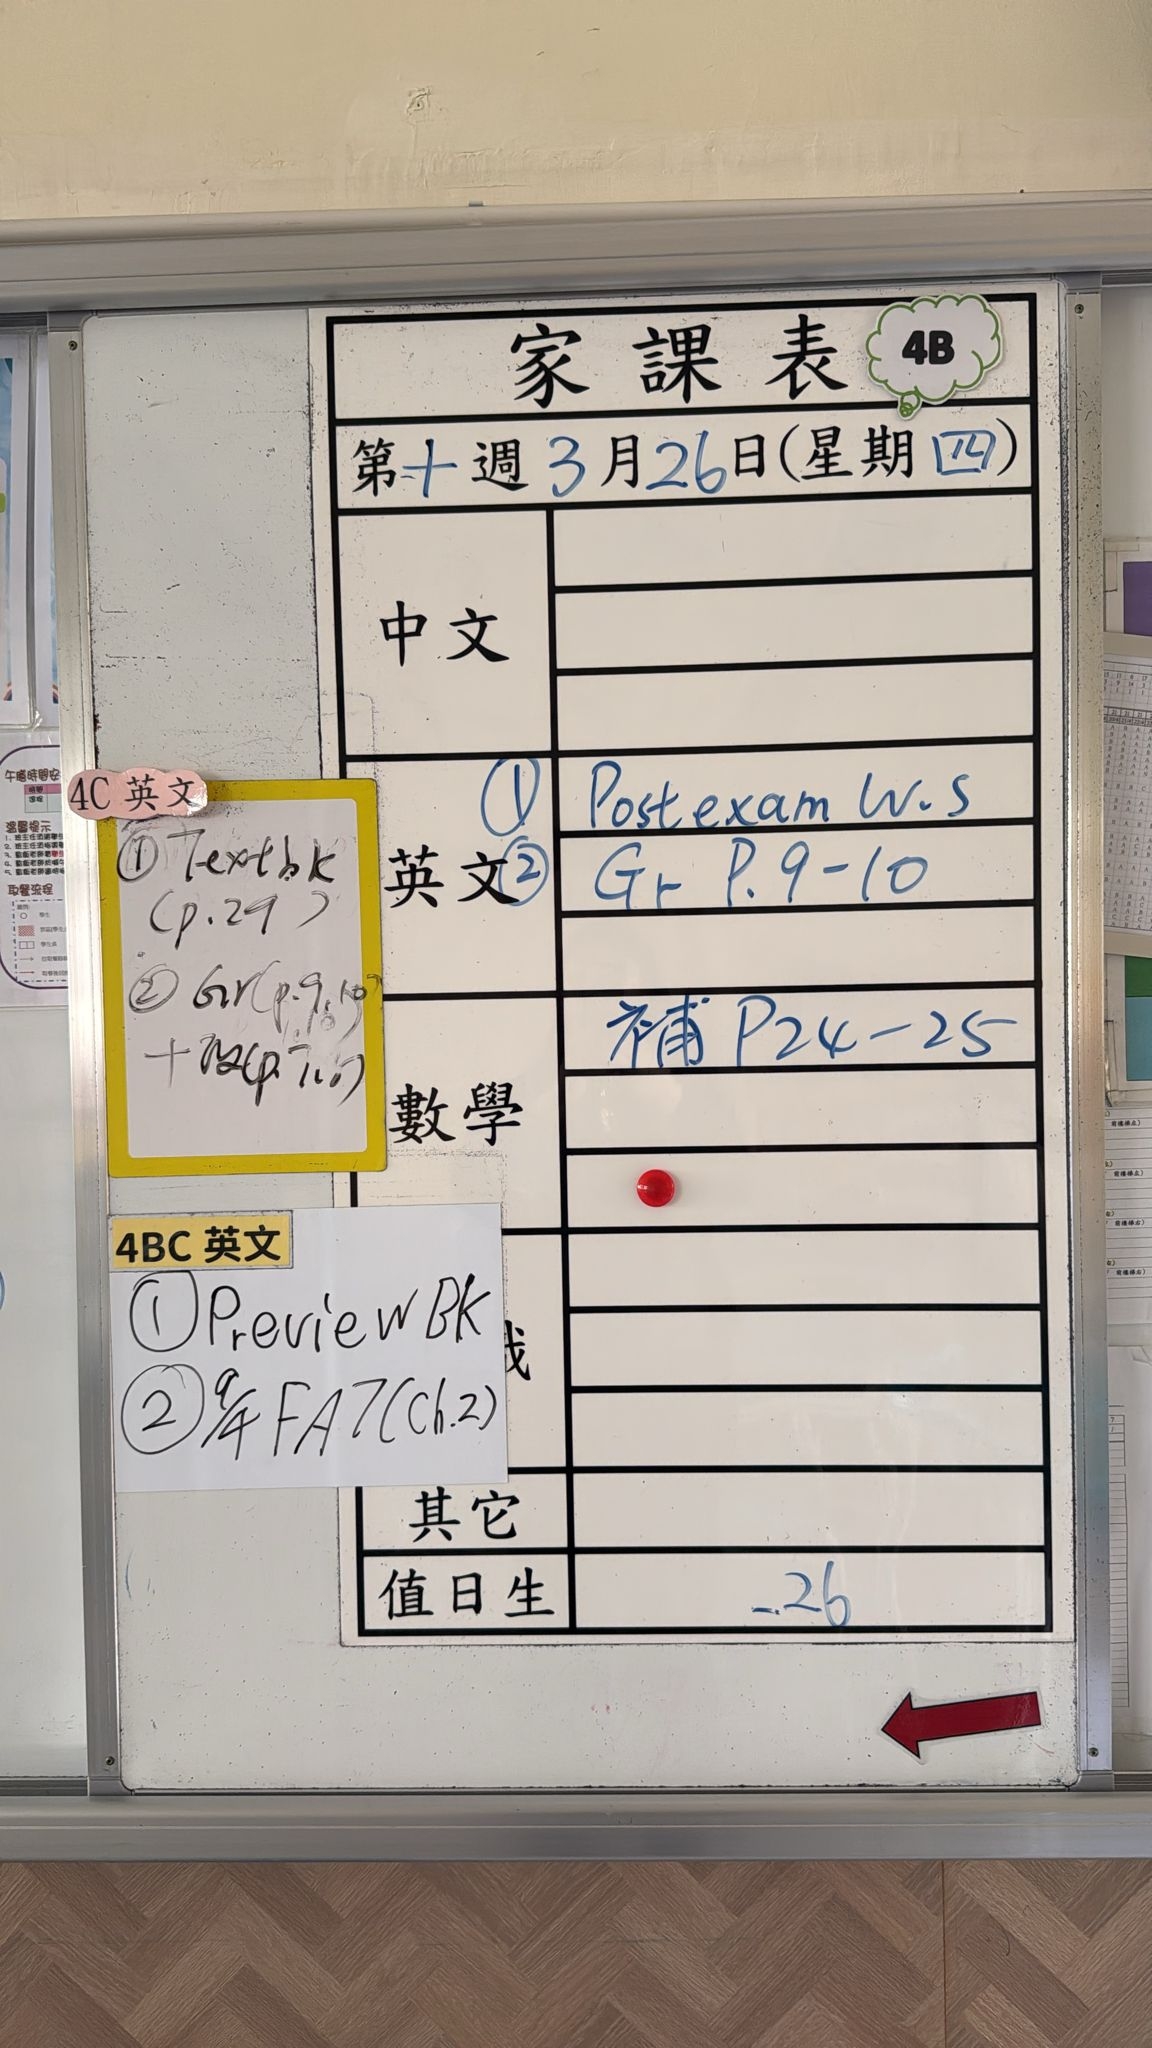 家課表 4B
第十週3月26日(星期四)
中文
英文
① Post exam W.S
② Gr P.9-10
數學
補 P24-25
其它
值日生
26
4C 英文
① Textbk
(p.29)
② Gr(p.9,10)
4BC 英文
① Preview BK
② 9/4 FA7(Ch.2)
午膳時間安
溫馨提示
取餐流程